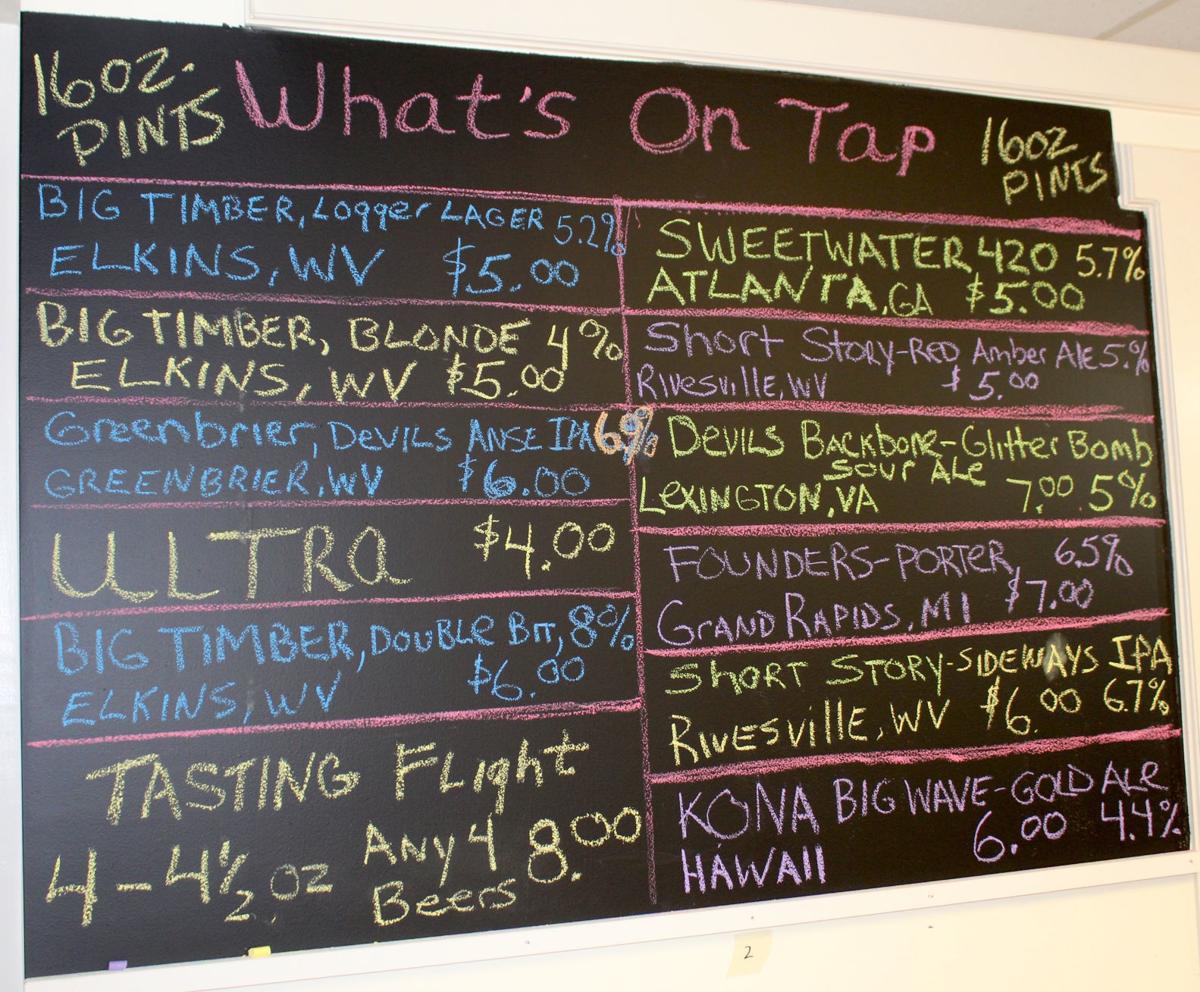 16OZ.
PINTS
What's On Tap
16OZ
PINTS
BIG TIMBER, Logger LAGER 5.2%
ELKINS, WV $5.00
BIG TIMBER, BLONDE 4%
ELKINS, WV $5.00
Greenbrier, DEVILS ANSE IPA 6.9%
GREENBRIER, WV $6.00
ULTRA $4.00
BIG TIMBER, DOUBLE BIT, 8%
ELKINS, WV $6.00
TASTING Flight
4-4½ oz Any 4 Beers 8.00
SWEETWATER 420 5.7%
ATLANTA, GA $5.00
Short Story-RED Amber Ale 5.%
Rivesville, WV $5.00
DEVILS BACKBONE-Glitter Bomb
Sour Ale
LEXINGTON, VA 7.00 5%
FOUNDERS-PORTER 6.5%
GRAND RAPIDS, MI $7.00
Short Story-SIDEWAYS IPA
RIVESVILLE, WV $6.00 6.7%
KONA BIG WAVE-GOLD ALE
6.00 4.4%
HAWAII
2